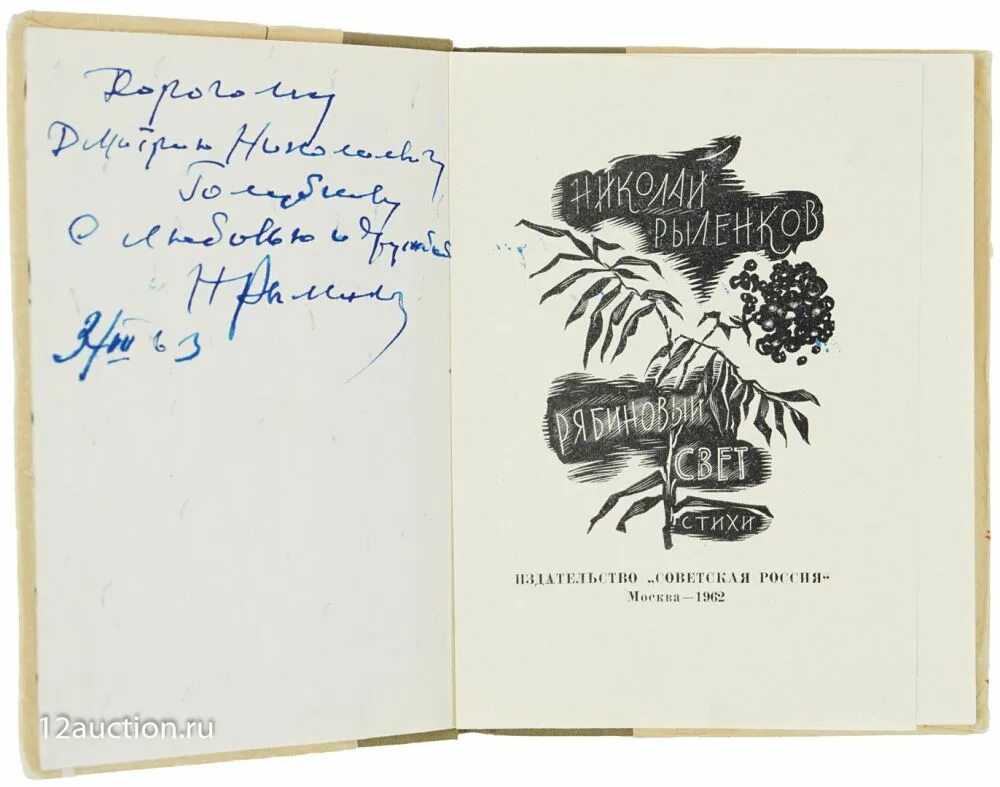 Дорогому
Дмитрию Николаевичу
Голубкову
С любовью и дружбой
Н Рыленков
3/III 63
НИКОЛАЙ
РЫЛЕНКОВ
РЯБИНОВЫЙ
СВЕТ
СТИХИ
ИЗДАТЕЛЬСТВО „СОВЕТСКАЯ РОССИЯ“
Москва—1962
12auction.ru